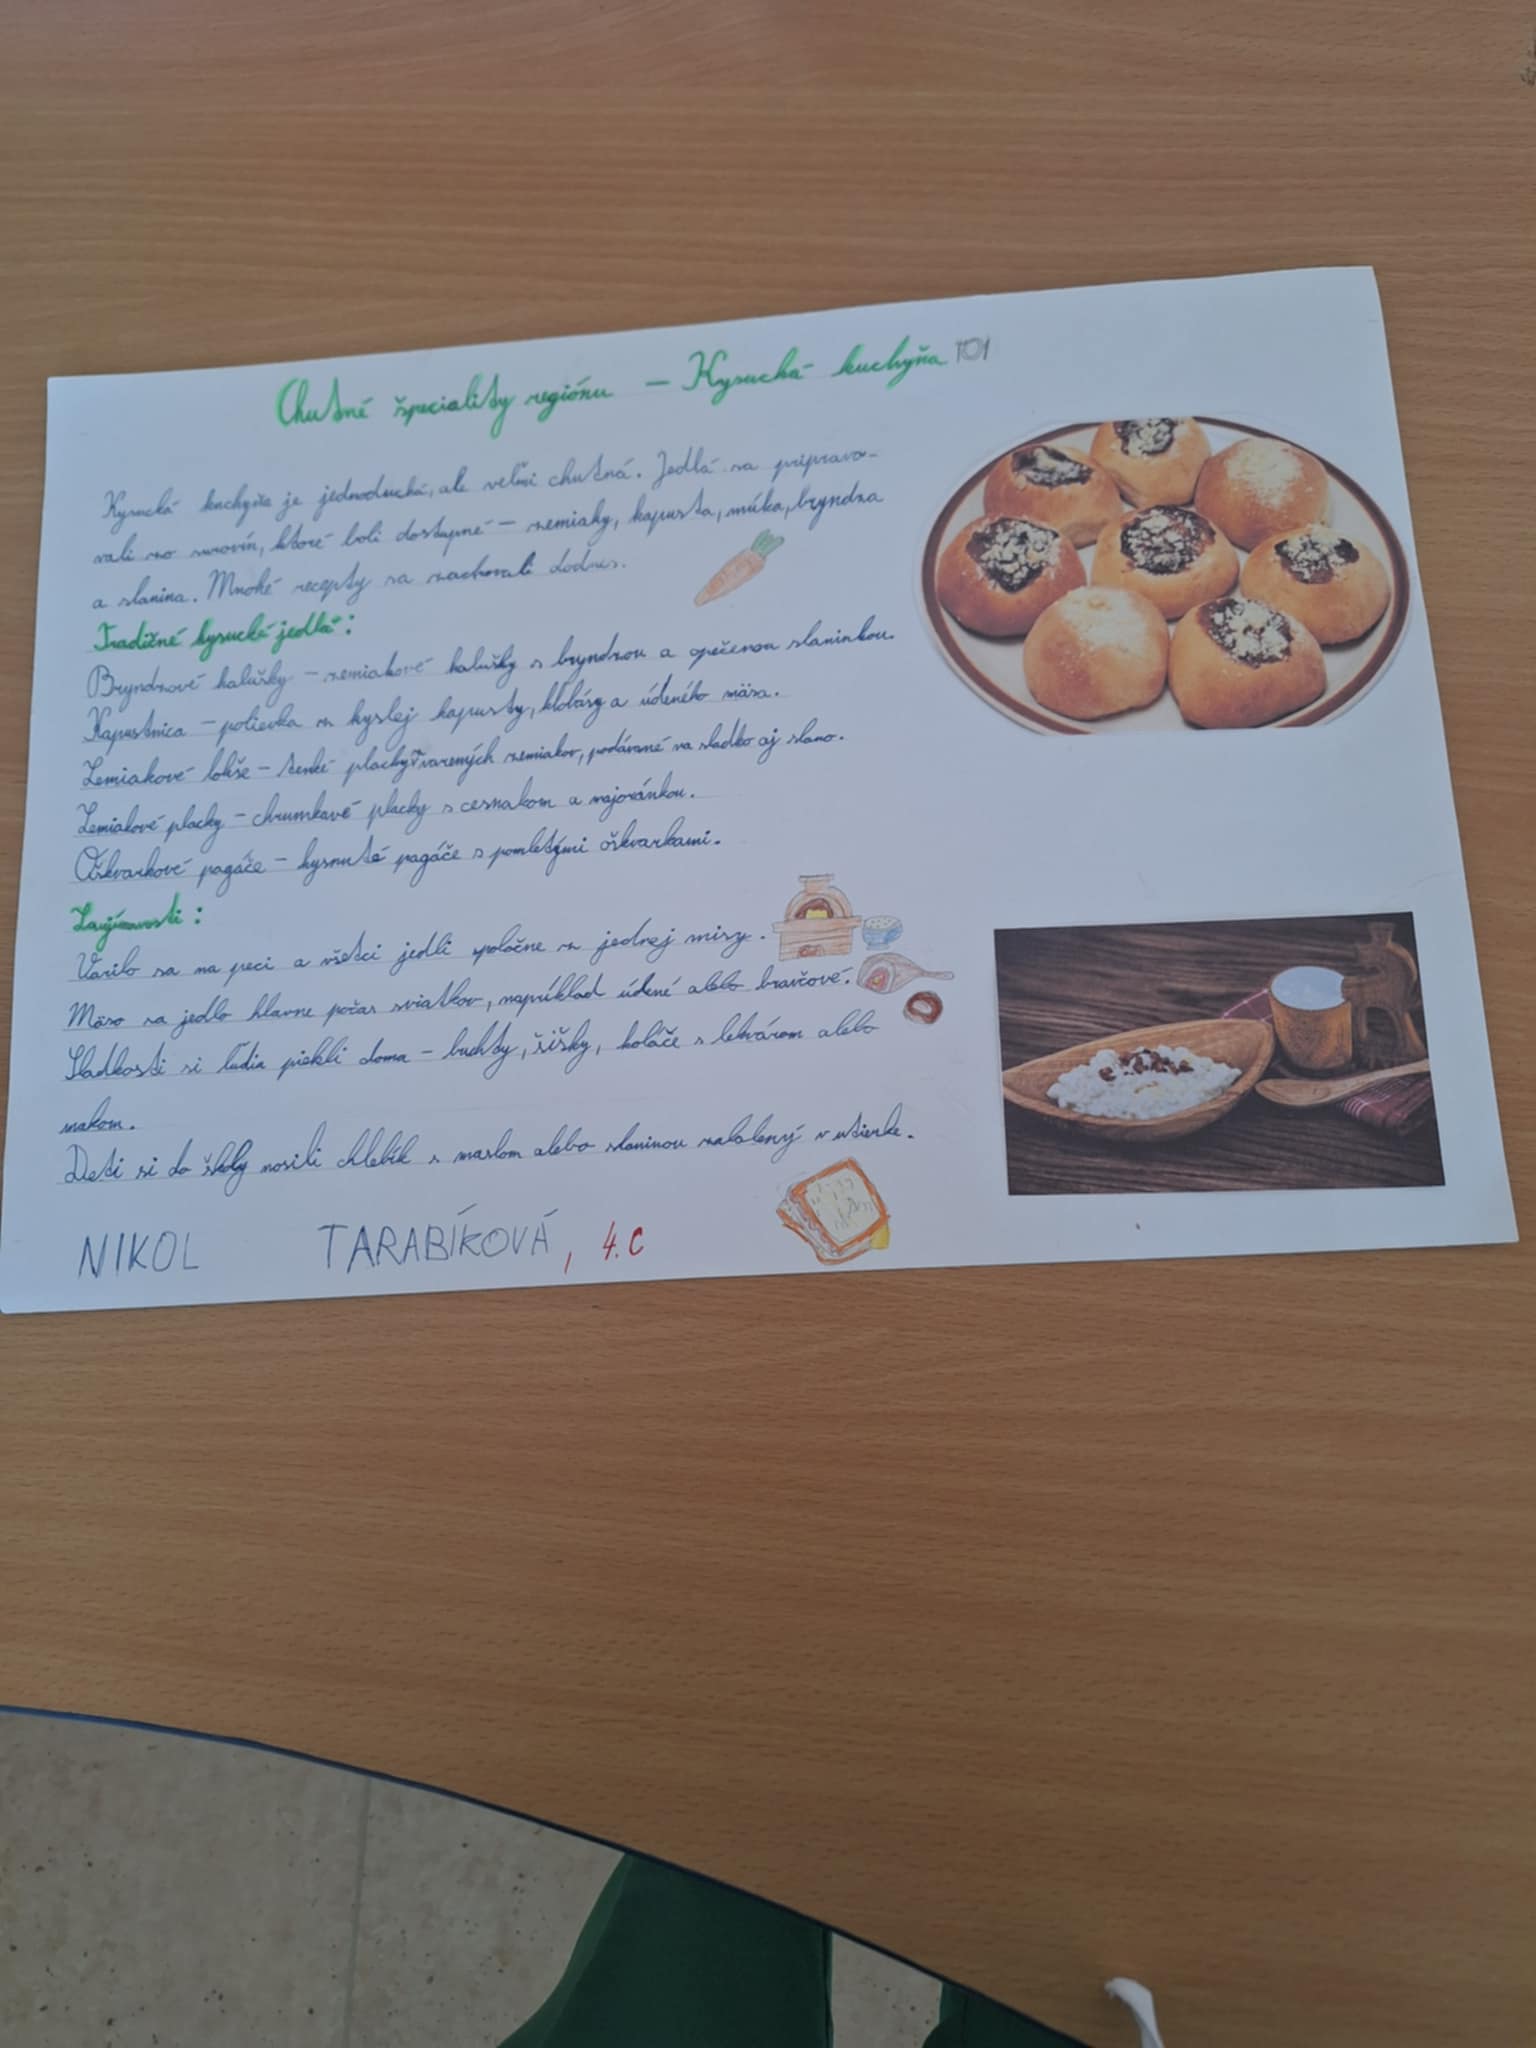 Chutné špeciality regiónu – Kysucká kuchyňa
Kysucká kuchyňa je jednoduchá, ale veľmi chutná. Jedlá sa pripravo-
vali zo surovín, ktoré boli dostupné – zemiaky, kapusta, múka, bryndza
a slanina. Mnohé recepty sa zachovali dodnes.
Tradičné kysucké jedlá:
Bryndzové halušky – zemiakové halušky s bryndzou a opečenou slaninkou.
Kapustnica – polievka z kyslej kapusty, klobásy a údeného mäsa.
Zemiakové lokše – tenké placky z varených zemiakov, podávané na sladko aj slano.
Zemiakové placky – chrumkavé placky s cesnakom a majoránkou.
Oškvarkové pagáče – kysnuté pagáče s pomletými oškvarkami.
Zaujímavosti:
Varilo sa na peci a všetci jedli spoločne z jednej misy.
Mäso sa jedlo hlavne počas sviatkov, napríklad údené alebo bravčové.
Sladkosti si ľudia piekli doma – buchty, šišky, koláče s lekvárom alebo
makom.
Deti si do školy nosili chlebík s maslom alebo slaninou zabalený v utierke.
NIKOL TARABÍKOVÁ, 4.C